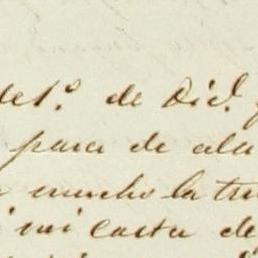 de 1º de Dicᵉ.
para de ala
mucho la tra
mi carta de